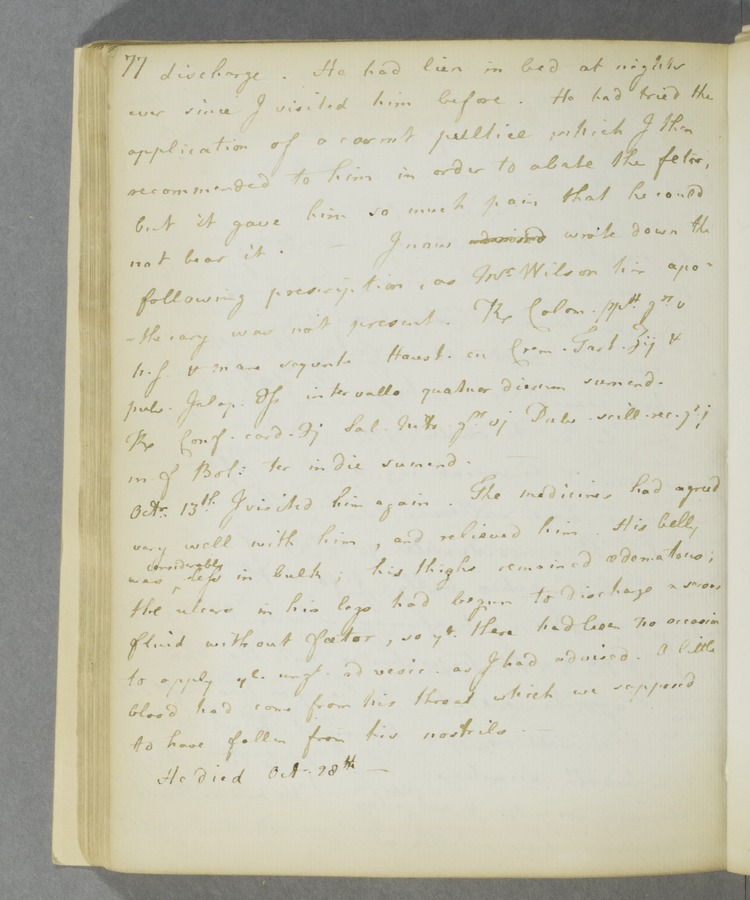 77 discharge. He had lien in bed at nights
ever since I visited him before. He had tried the
application of a carrot pultice which I then
recommended to him in order to abate the fetor,
but it gave him so much pain that he could
not bear it. — I now advised wrote down the
following prescription, as Mr. Wilson his apo-
-thecary was not present. Rx Calom. ppt. gr. v
h.s. & mane sequente Haust. cu Crem. Tart. ʒij &
pulv. Jalap. ℈ss intervallo quatuor dierum sumend.
Rx Conf. card. ℈j Sal. Nitr. gr. vj Pulv. scill. rec. gr. j
m. f Bol: ter in die sumend.
Octr. 13th I visited him again. The medicines had agreed
very well with him, and relieved him. His belly
was considerably less in bulk; his thighs remained œdematous;
the ulcers in his legs had begun to discharge a serous
fluid without fœtor, so yt. there had been no occasion
to apply ye. ungt. ad vesic. as I had advised. A little
blood had come from his throat which we supposed
to have fallen from his nostrils. —
He died Oct. 28th —